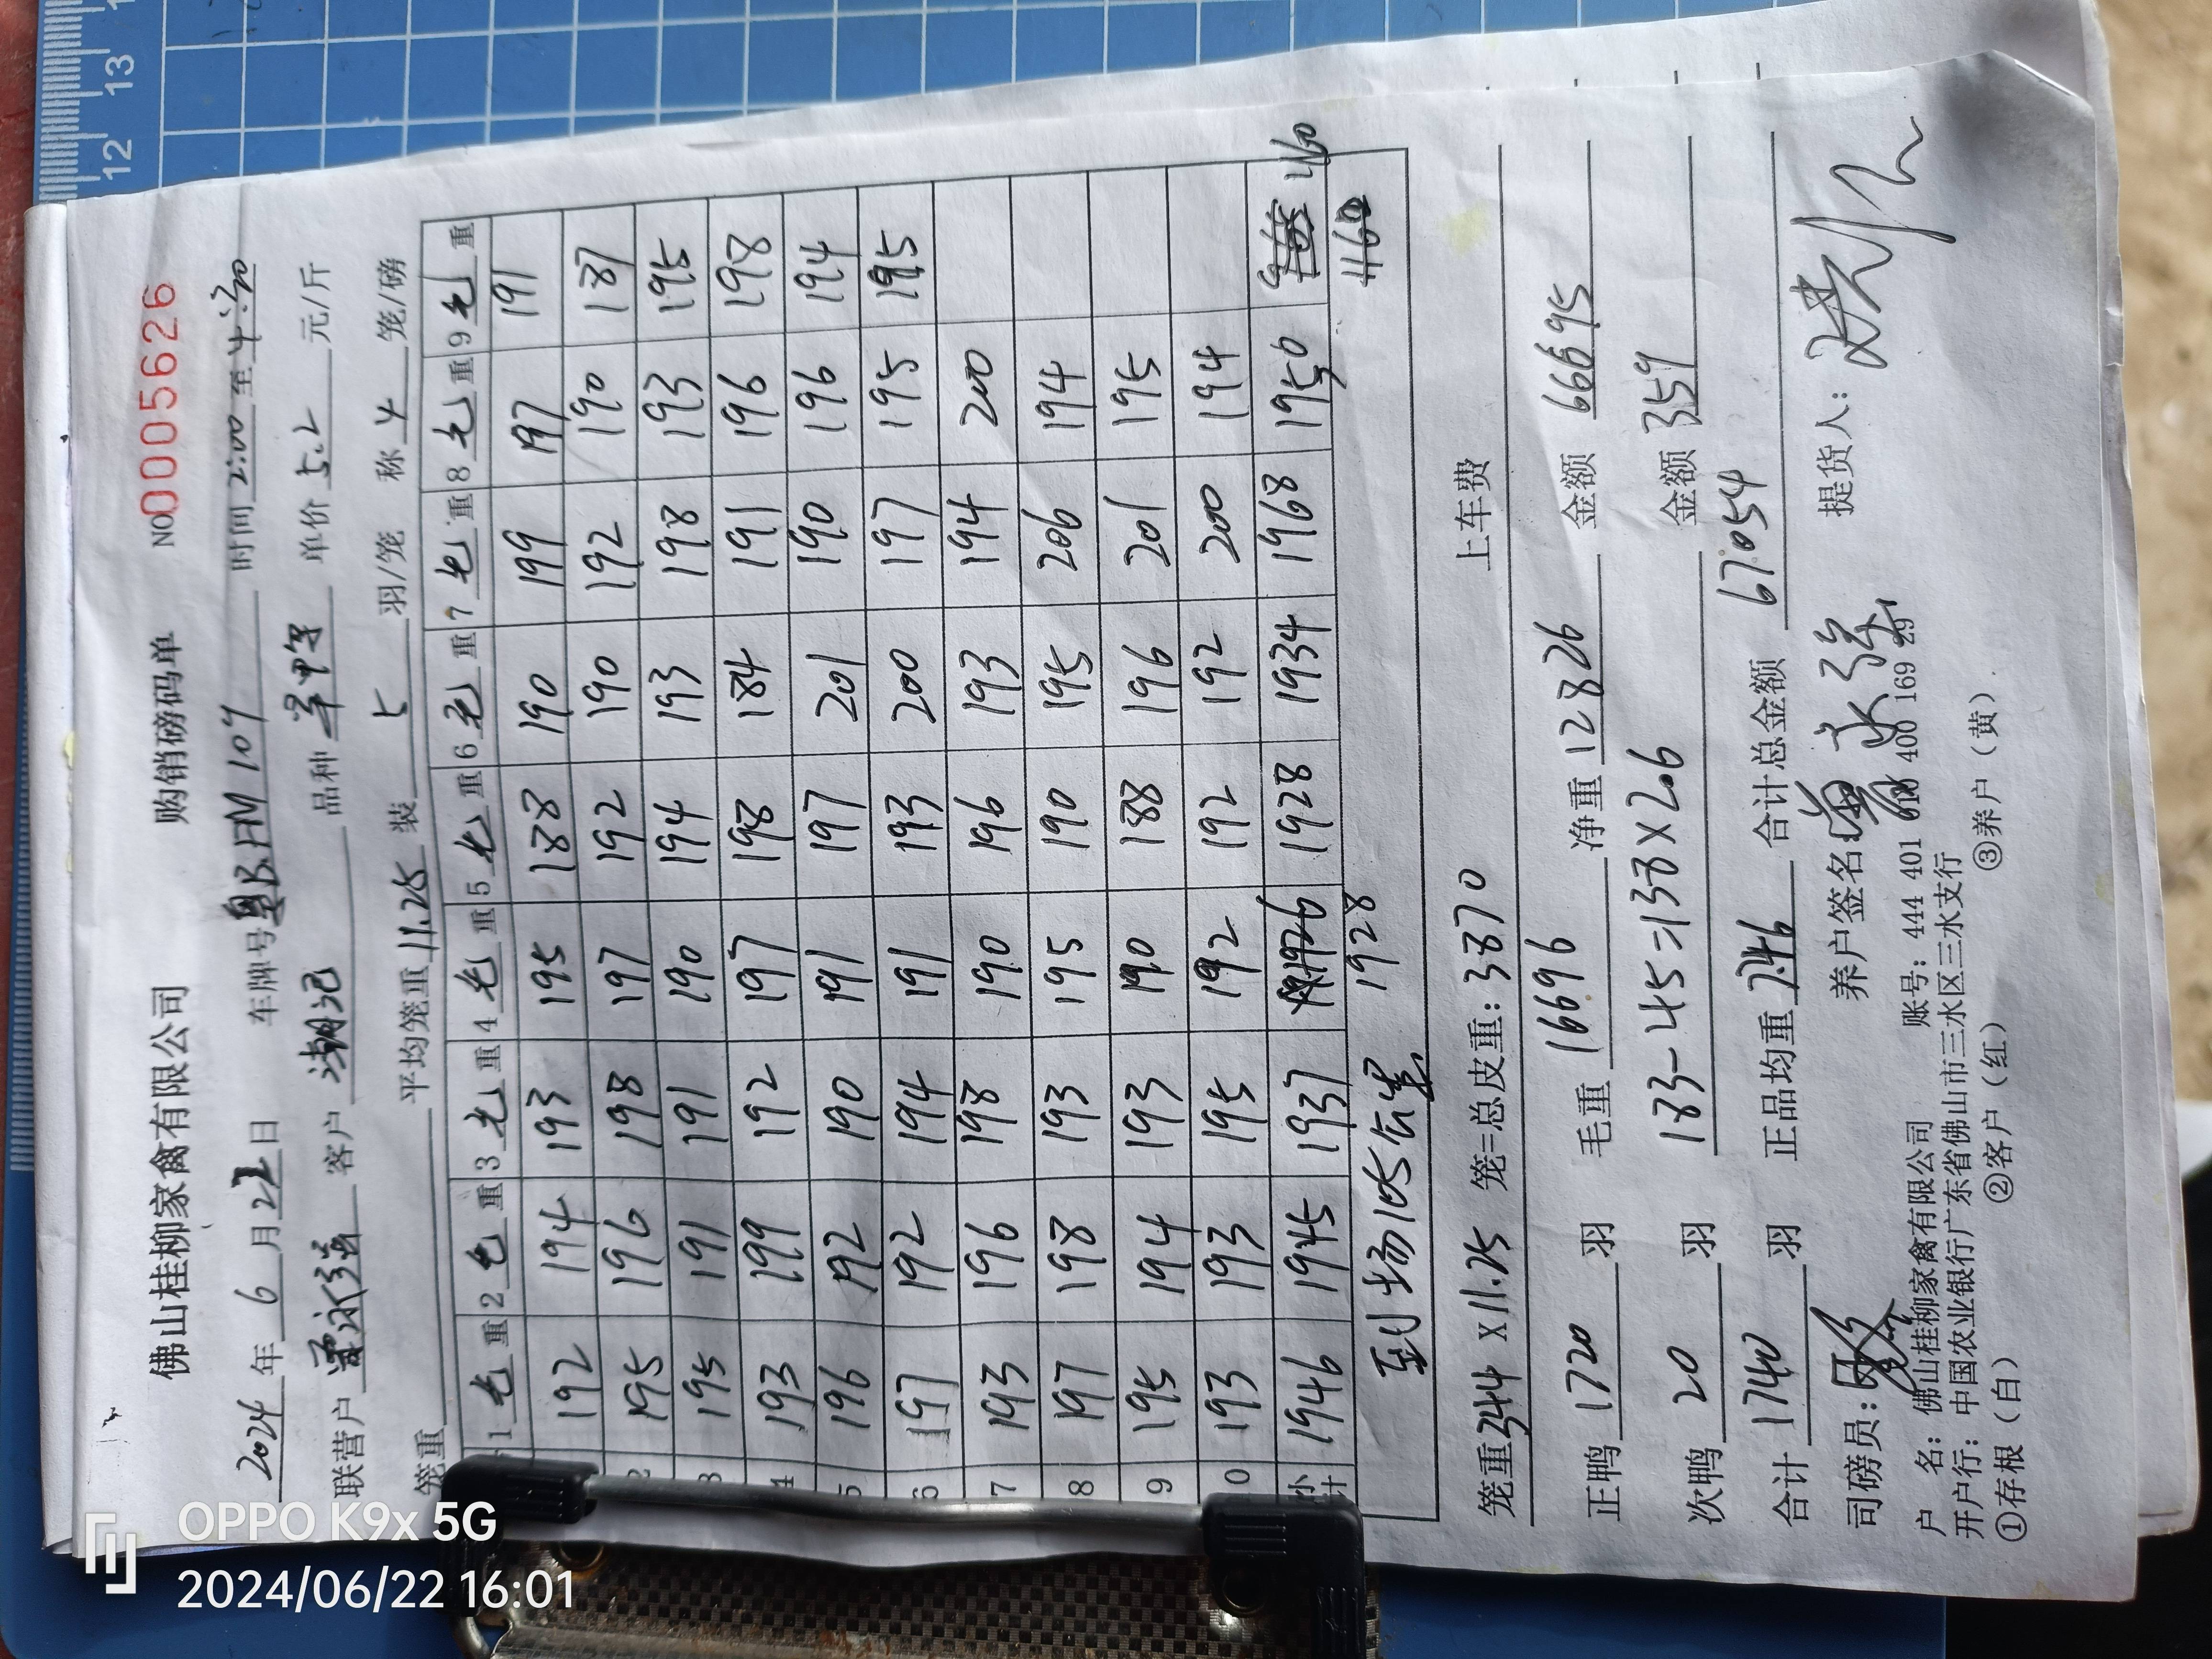 佛山桂柳家禽有限公司 购销磅码单 NO0005626
2024年6月22日 车牌号粤BFM107 时间2:00至4:30
联营户 客户潮记 品种 单价5.2元/斤
笼重 平均笼重11.25装5羽/笼 称4笼/磅
1毛重 2毛重 3毛重 4毛重 5毛重 6毛重 7毛重 8毛重 9毛重
192 194 193 195 188 190 199 197 191
2 195 196 198 197 192 190 192 190 187
3 195 191 191 190 194 193 198 193 195
4 193 199 192 197 198 184 191 196 198
5 196 192 190 191 197 201 190 196 194
6 197 192 194 191 193 200 197 195 195
7 193 196 198 190 196 193 194 200
8 197 198 193 195 190 195 206 194
9 195 194 193 190 188 196 201 195
0 193 193 195 192 192 192 200 194
小计 1946 1945 1937 1928 1934 1968 1950 1160
1928 1160
到场105公里
笼重344×11.25 笼=总皮重:3870 上车费
正鸭1720羽 毛重16696 净重12826 金额66695
次鸭20羽 183-45=138×2.6 金额359
合计1740羽 正品均重7.46 合计总金额67054
司磅员: 养户签名 提货人:
户 名:佛山桂柳家禽有限公司 账号:444 401 010 400 169 29
开户行:中国农业银行广东省佛山市三水区三水支行
①存根(白) ②客户(红) ③养户(黄)
12 13
OPPO K9x 5G
2024/06/22 16:01